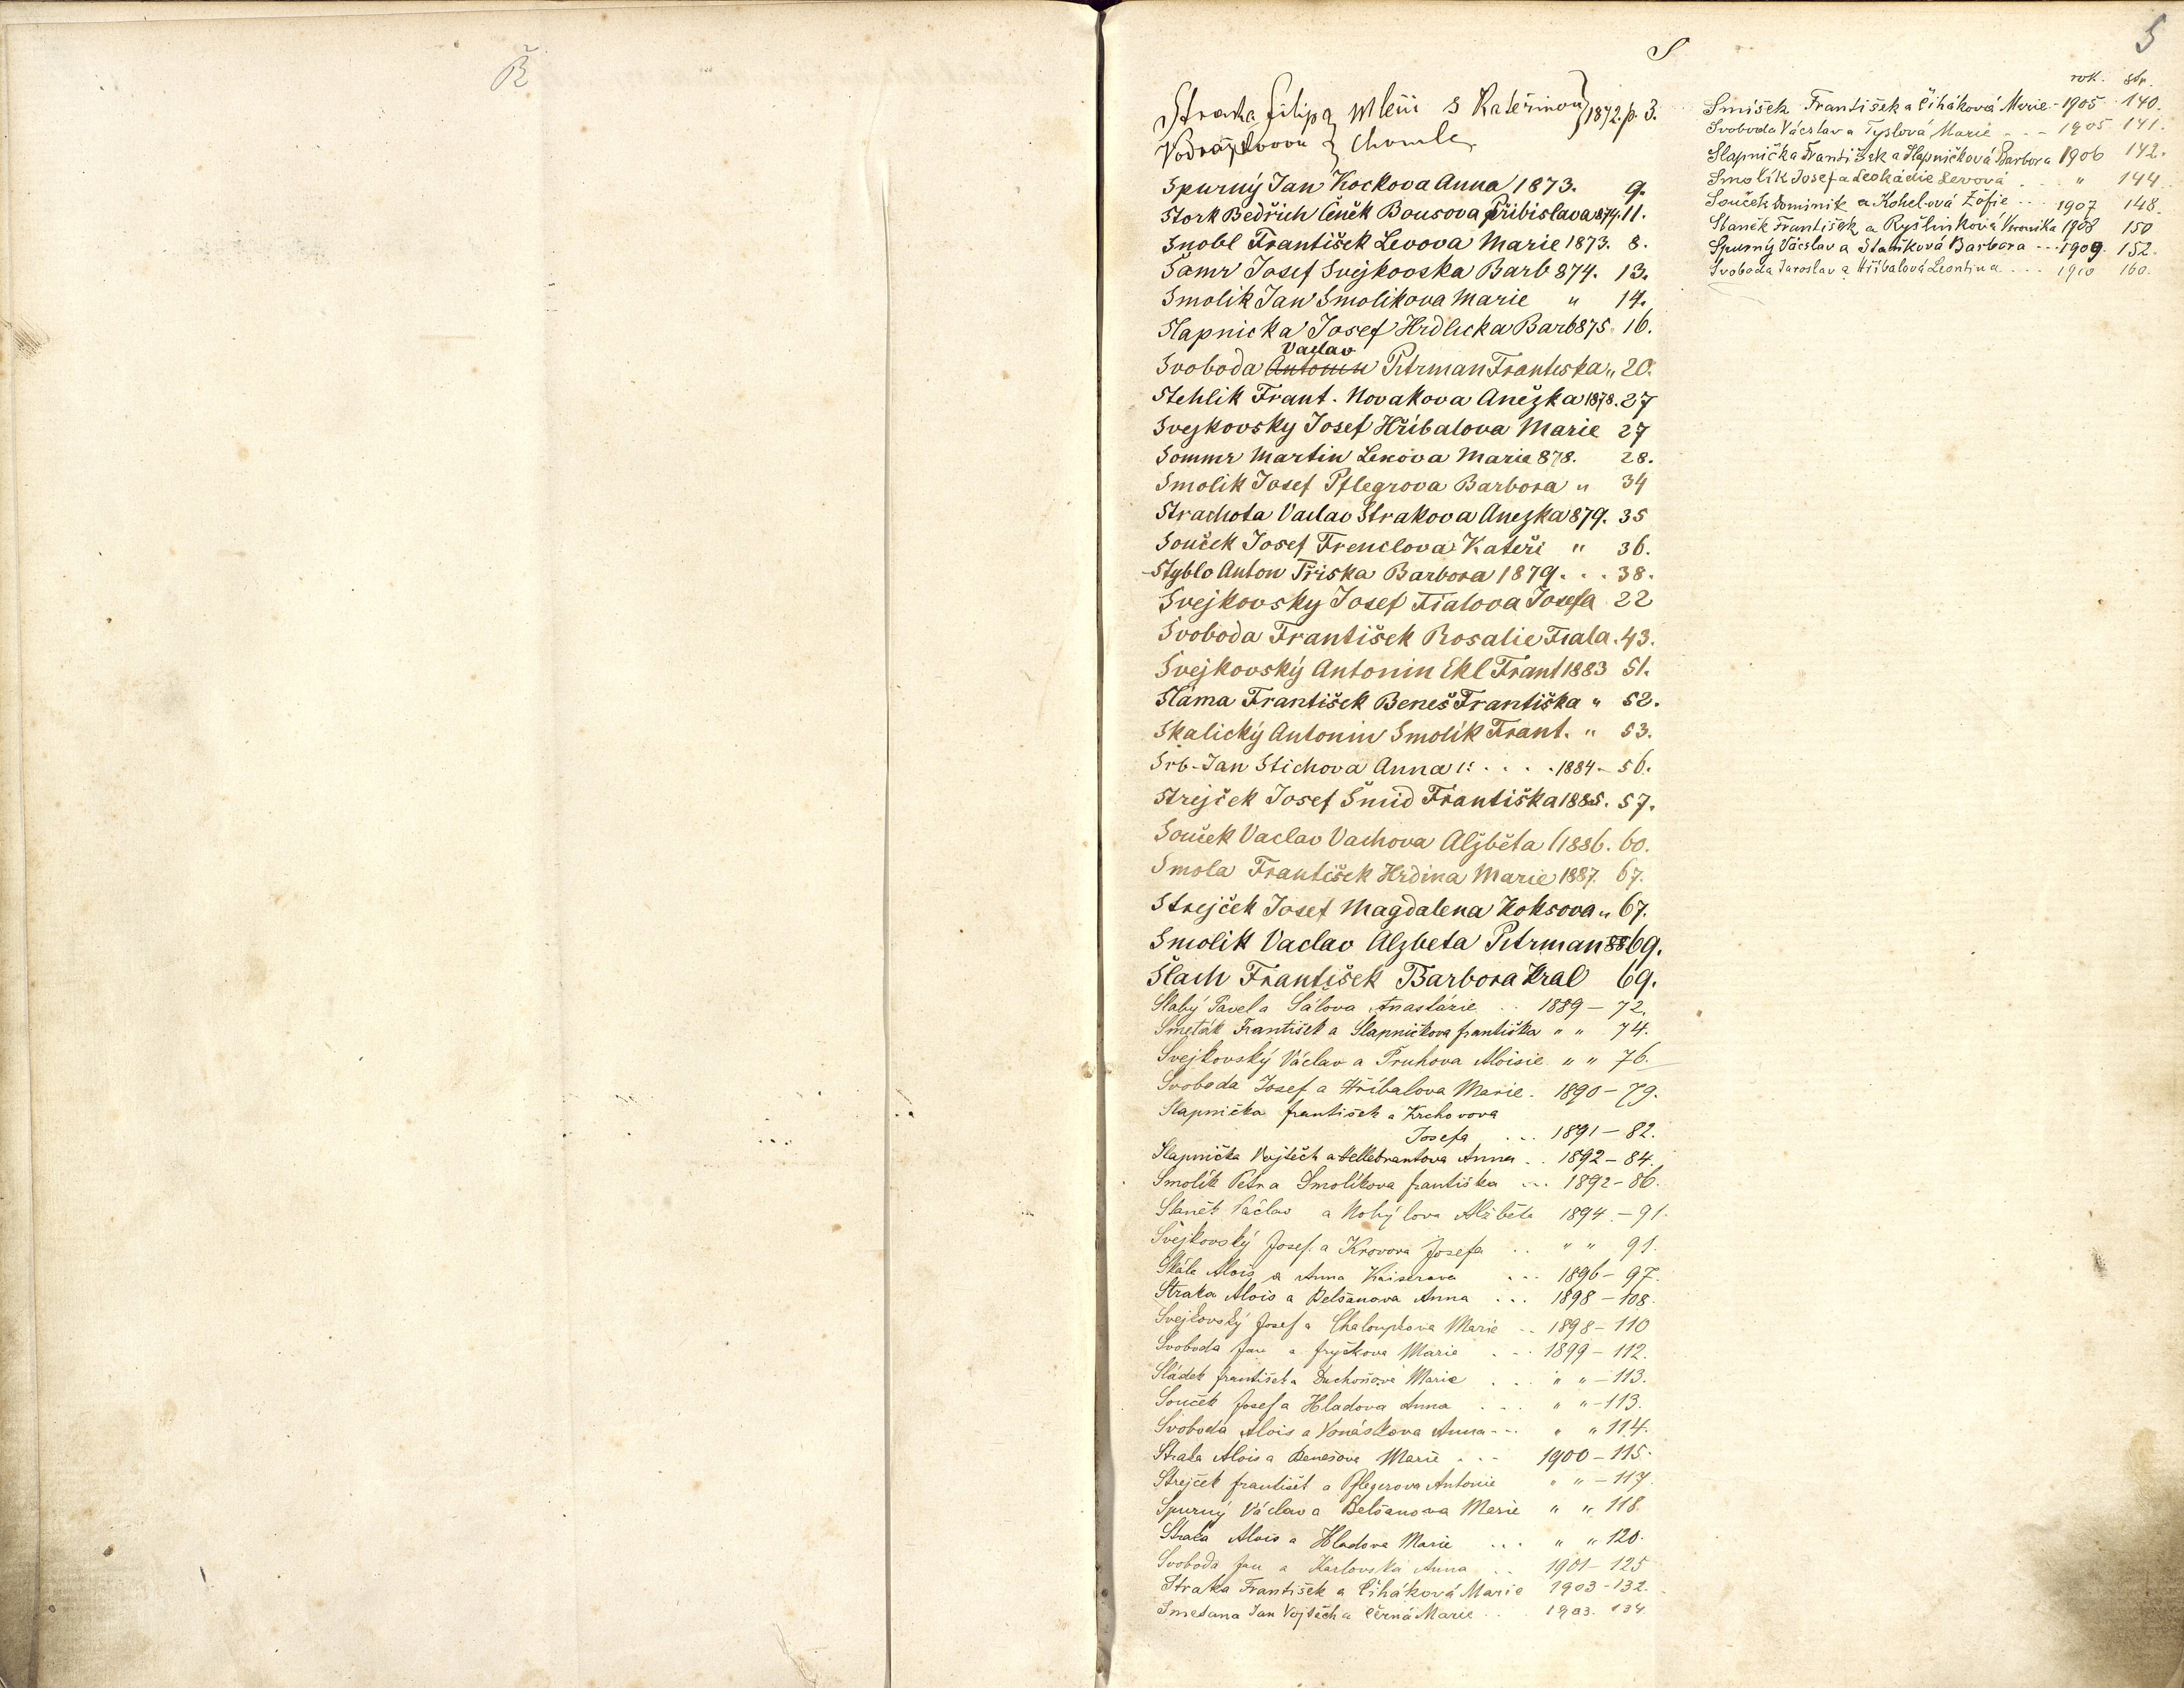 Ř
S
Straka Filip z Mleči s Kateřinou } 1872. p. 3.
z Chomle
Spurný Jan Kockova Anna 1873. 9.
Stork Bedřich Čeněk Bousova Přibislava 874. 11.
Snobl František Levova Marie 1873. 8.
Samr Josef Svejkovska Barb 874. 13.
Smolik Jan Smolikova Marie " 14.
Slapnicka Josef Hrdlicka Barb 875. 16.
Vaclav
Svoboda Antonin Petrman Frantiska " 20.
Stehlik Frant. Novakova Anežka 1878. 27
Svejkovsky Josef Hříbalova Marie 27
Sommr Martin Lenova Marie 878. 28.
Smolik Josef Pflegrova Barbora " 34
Strachota Vaclav Strakova Anezka 879. 35
Souček Josef Frenclova Kateři " 36.
Styblo Anton Třiska Barbora 1879. . . 38.
Svejkovsky Josef Fialova Josefa 22
Svoboda František Rosalie Fiala. 43.
Svejkovský Antonin Ekl Frant 1883 51.
Sláma František Beneš Františka " 52.
Skalický Antonin Smolík Frant. " 53.
Srb. Jan Stichova Anna . . . . 1884. 56.
Strejček Josef Šmid Františka 1885. 57.
Souček Vaclav Vachova Alžběta 1886. 60.
Smola František Hrdina Marie 1887. 67.
Strejček Josef Magdalena Koksova " 67.
Smolik Vaclav Alzbeta Petrman 88 69.
Šlach František Barbora Kral 69.
Slabý Pavel a Sálova Anastázie . . 1889 – 72.
Smeták František a Slapničkova františka " " 74.
Svejkovský Václav a Pruhova Aloisie " " 76.
Svoboda Josef a Hříbalova Marie. 1890 – 79.
Slapnička františek a Krchovova
Josefa . . . 1891 – 82.
Slapnička Vojtěch a Hellebrantova Anna . . 1892 – 84.
Smolík Petr a Smolíkova františka . . . 1892 – 86.
Staněk Václav a Nohýlova Alžběta 1894. – 91.
Svejkovský Josef a Krovova Josefa . . " " 91.
Skála Alois a Anna Kaiserova . . . 1896 – 97.
Straka Alois a Belšanova Anna . . . 1898 – 108.
Svejkovský Josef a Chaloupkova Marie . . 1898 – 110
Svoboda Jan a fryčkova Marie . . . 1899 – 112.
Sládek františek a Duchoňova Marie . . . " " – 113.
Souček Josef a Hladova Anna . . . " " – 113.
Svoboda Alois a Vonáskova Anna . . . " " 114.
Straka Alois a Benešova Marie . . . 1900 – 115.
Strejček františek a Pflegerova Antonie " " – 117.
Spurný Václav a Belšanova Marie " " 118.
Straka Alois a Hladova Marie . . . " " 120.
Svoboda Jan a Karlovska Anna . . 1901 – 125
Straka František a Čiháková Marie 1903 – 132.
Smetana Jan Vojtěch a Černá Marie . . . 1903. 134.
5
rok. str.
Smíšek František a Čiháková Marie – 1905 140.
Svoboda Václav a Tyslová Marie . . – 1905 141.
Slapnička František a Slapničková Barbora 1906 142.
Smolík Josef a Leokádie Levová . . . " 144
Souček Dominik a Kohelová Žofie . . . 1907 148.
Staněk František a Ryšlinková Veronika 1908 150
Spurný Václav a Staňková Barbora . . . 1909. 152.
Svoboda Jaroslav a Hříbalová Leontina . . . 1910 160.